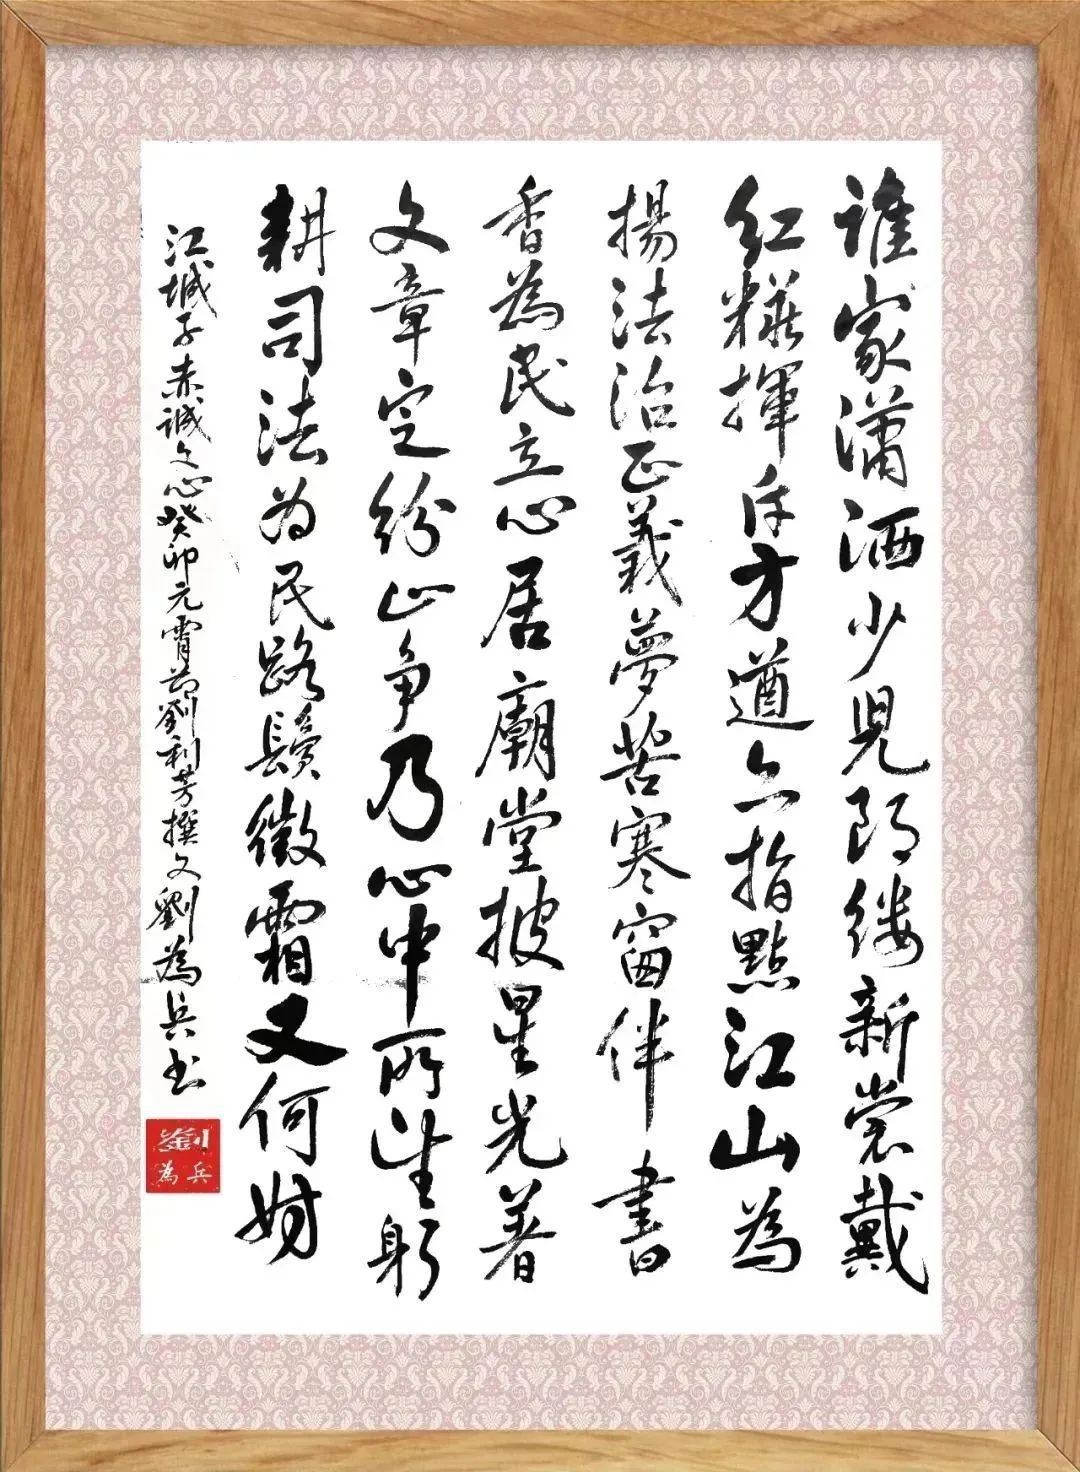 誰家瀟洒少兒郎缕新裳戴
红糚揮斥方遒亦指點江山為
揚法治正義夢苦寒窗伴書
香為民立心居廟堂披星光著
文章定纷止争乃心中所望躬
耕司法为民路鬢微霜又何妨
江城子赤诚文心癸卯元宵節劉利芳撰文劉為兵书
劉為兵